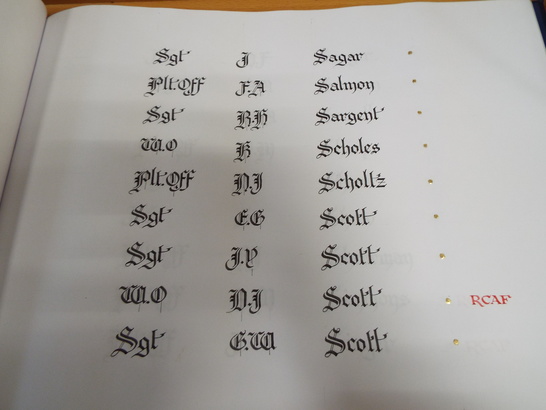 Sgt J Sagar
Plt.Off F.A Salmon
Sgt B.H Sargent
W.O K Scholes
Plt.Off D.J Scholtz
Sgt E.G Scott
Sgt J.P Scott
W.O D.J Scott RCAF
Sgt G.W Scott